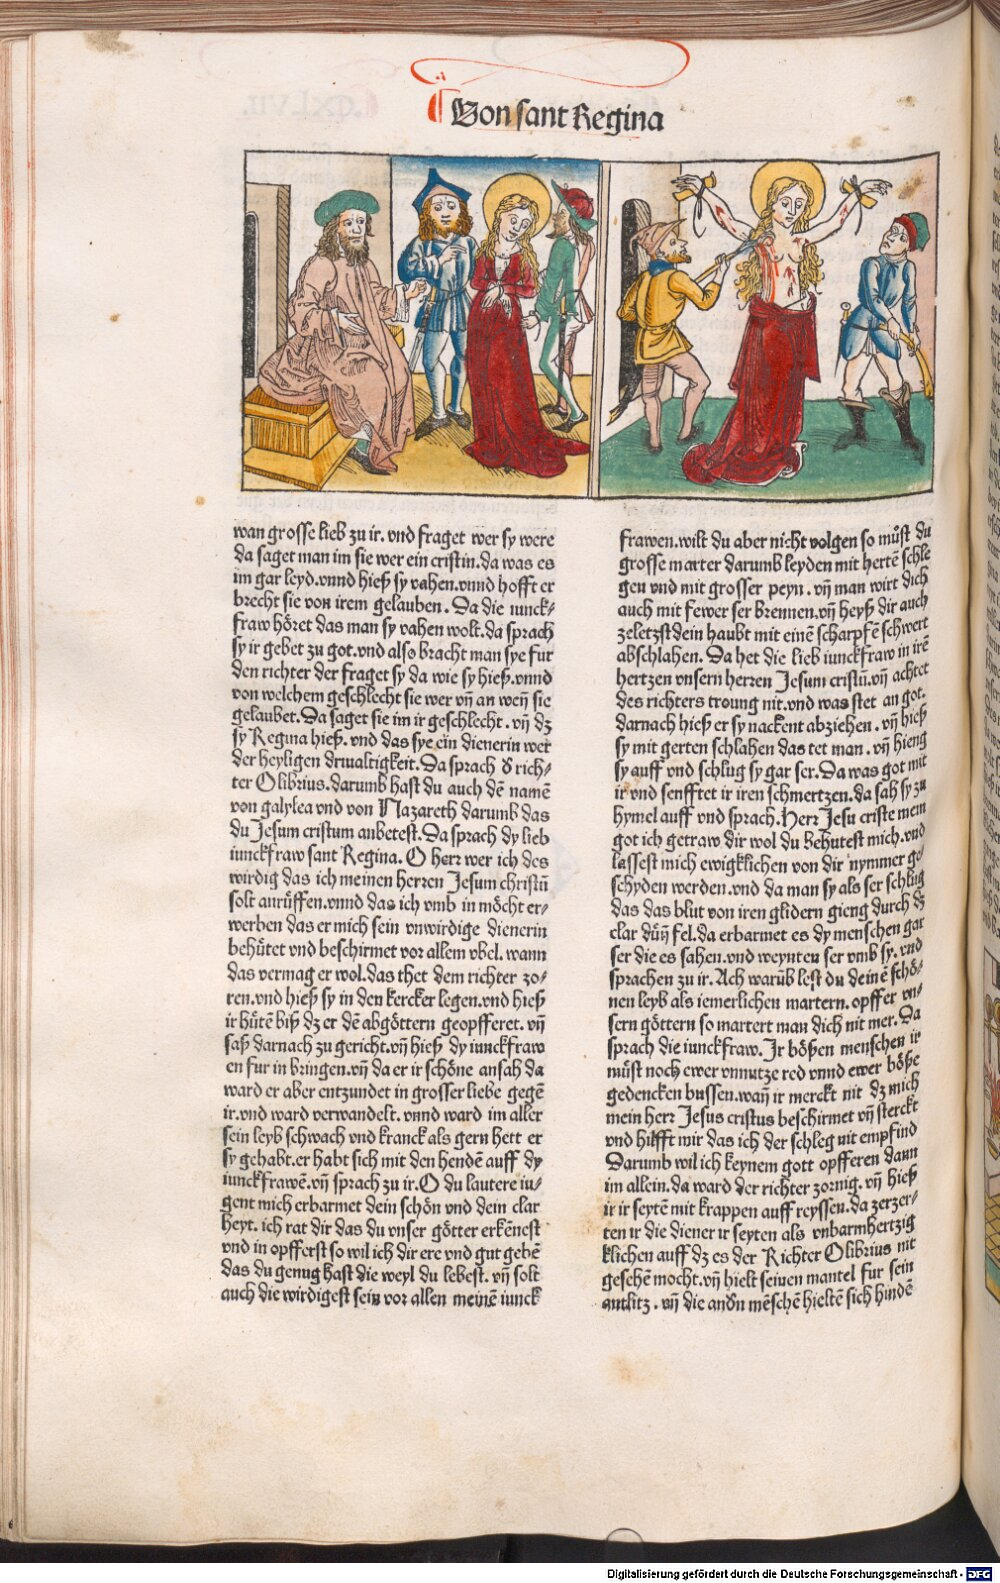 Von sant Regina
wan grosse lieb zu ir. vnd fraget wer sy were
da saget man im sie wer ein cristin. da was es
im gar leyd. vnnd hieß sy vahen. vnnd hofft er
brecht sie von irem gelauben. Da die iunck⸗
fraw höret das man sy vahen wolt. da sprach
sy ir gebet zu got. vnd also bracht man sye fur
den richter der fraget sy da wie sy hieß. vnnd
von welchem geschlecht sie wer vñ an weñ sie
gelaubet. Da saget sie im ir geschlecht. vñ dz
sy Regina hieß. vnd das sye ein dienerin wer
der heyligen driualtigkeit. Da sprach d̕ rich⸗
ter Olibrius. darumb hast du auch dẽ namẽ
von galylea vnd von Nazareth darumb das
du Jesum cristum anbetest. Da sprach dy lieb
iunckfraw sant Regina. O herr wer ich des
wirdig das ich meinen herren Jesum christũ
solt anrůffen. vnnd das ich vmb in möcht er⸗
werben das er mich sein vnwirdige dienerin
behůtet vnd beschirmet vor allem vbel. wann
das vermag er wol. das thet dem richter zo⸗
ren. vnd hieß sy in den kercker legen. vnd hieß
ir hůtẽ biß dz er dẽ abgöttern geopfferet. vñ
saß darnach zu gericht. vñ hieß dy iunckfraw
en fur in bringen. vñ da er ir schöne ansah da
ward er aber entzundet in grosser liebe gegẽ
ir. vnd ward verwandelt. vnnd ward im aller
sein leyb schwach vnd kranck als gern hett er
sy gehabt. er habt sich mit den hendẽ auff dy
iunckfrawẽ. vñ sprach zu ir. O du lautere iu⸗
gent mich erbarmet dein schön vnd dein clar
heyt. ich rat dir das du vnser götter erkẽnest
vnd in opfferst so wil ich dir ere vnd gut gebẽ
das du genug hast die weyl du lebest. vñ solt
auch die wirdigest sein vor allen meinẽ iunck
frawen. wilt du aber nicht volgen so můst du
grosse marter darumb leyden mit hertẽ schle
gen vnd mit grosser peyn. vñ man wirt dich
auch mit fewer ser brennen. vñ heyß dir auch
zeletzst dein haubt mit einẽ scharpfẽ schwert
abschlahen. Da het die lieb iunckfraw in irẽ
hertzen vnsern herren Jesum cristũ. vñ achtet
des richters troung nit. vnd was stet an got.
darnach hieß er sy nackent abziehen. vñ hieß
sy mit gerten schlahen das tet man. vñ hieng
sy auff vnd schlug sy gar ser. Da was got mit
ir vnd senfftet ir iren schmertzen. da sah sy zu
hymel auff vnd sprach. Herr Jesu criste mein
got ich getraw dir wol du behutest mich. vnd
lassest mich ewigklichen von dir nymmer ge
schyden werden. vnd da man sy als ser schlug
das das blut von iren glidern gieng durch dz
clar dũñ fel. da erbarmet es dy menschen gar
ser die es sahen. vnd weynten ser vmb sy. vnd
sprachen zu ir. Ach warũb lest du deinẽ schö⸗
nen leyb als iemerlichen martern. opffer vn⸗
sern göttern so martert man dich nit mer. Da
sprach die iunckfraw. Ir bößen menschen ir
můst noch ewer vnnutze red vnnd ewer böße
gedencken bussen. wañ ir merckt nit dz mich
mein herr Jesus cristus beschirmet vñ sterckt
vnd hilfft mir das ich der schleg nit empfind
Darumb wil ich keynem gott opfferen dann
im allein. da ward der richter zornig. vñ hieß
ir ir seytẽ mit krappen auff reyssen. da zerzer⸗
ten ir die diener ir seyten als vnbarmhertzig
klichen auff dz es der Richter Olibrius nit
gesehẽ mocht. vñ hielt seinen mantel fur sein
antlitz. vñ die andn̄ mẽschẽ hieltẽ sich hindẽ
Digitalisierung gefördert durch die Deutsche Forschungsgemeinschaft - DFG